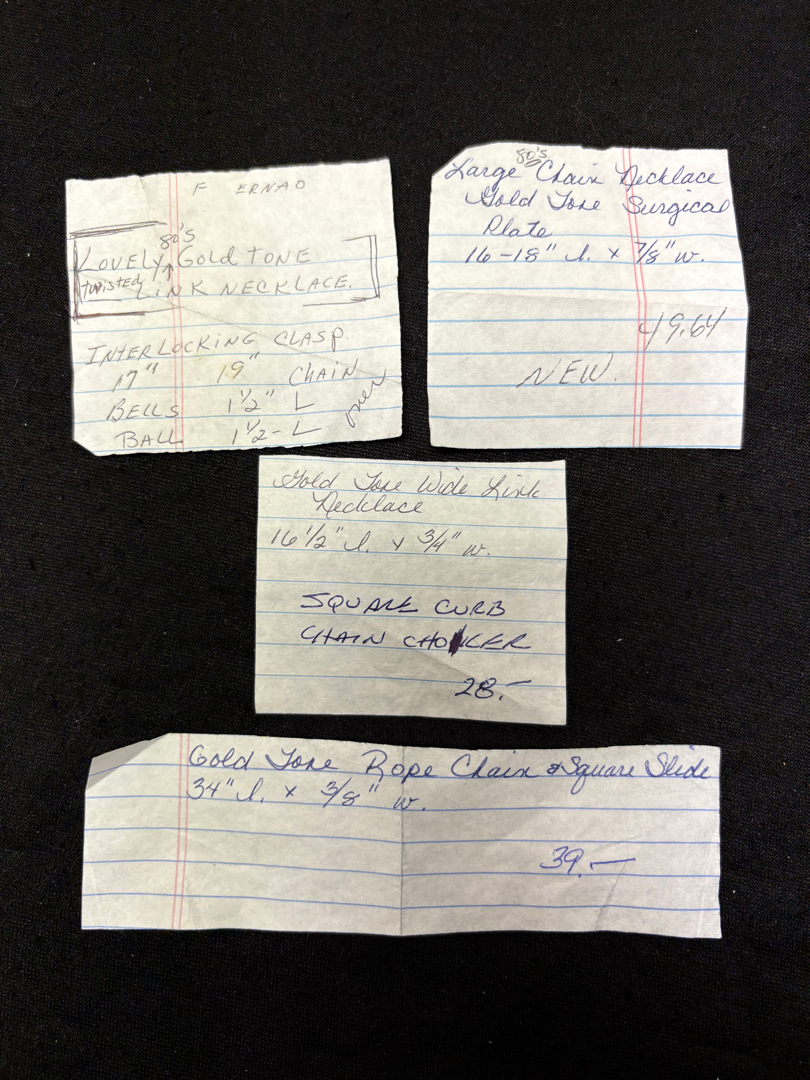 F ERNAO
80's
LOVELY GOLD TONE
twisted LINK NECKLACE.
INTERLOCKING CLASP
17" 19" CHAIN
BELLS 1½" L
BALL 1½-L
over
80's
Large Chain Necklace
Gold Tone Surgical
Plate
16-18" l. x 7/8" w.
49.64
NEW.
Gold Tone Wide Link
Necklace
16 1/2" l. x 3/4" w.
SQUARE CURB
CHAIN CHOKER
28.-
Gold Tone Rope Chain & Square Slide
34" l. x 3/8" w.
39.-